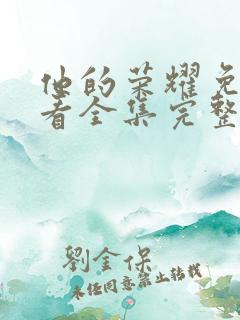 他的荣耀免
看全集完整
劉金保
未经同意禁止转载